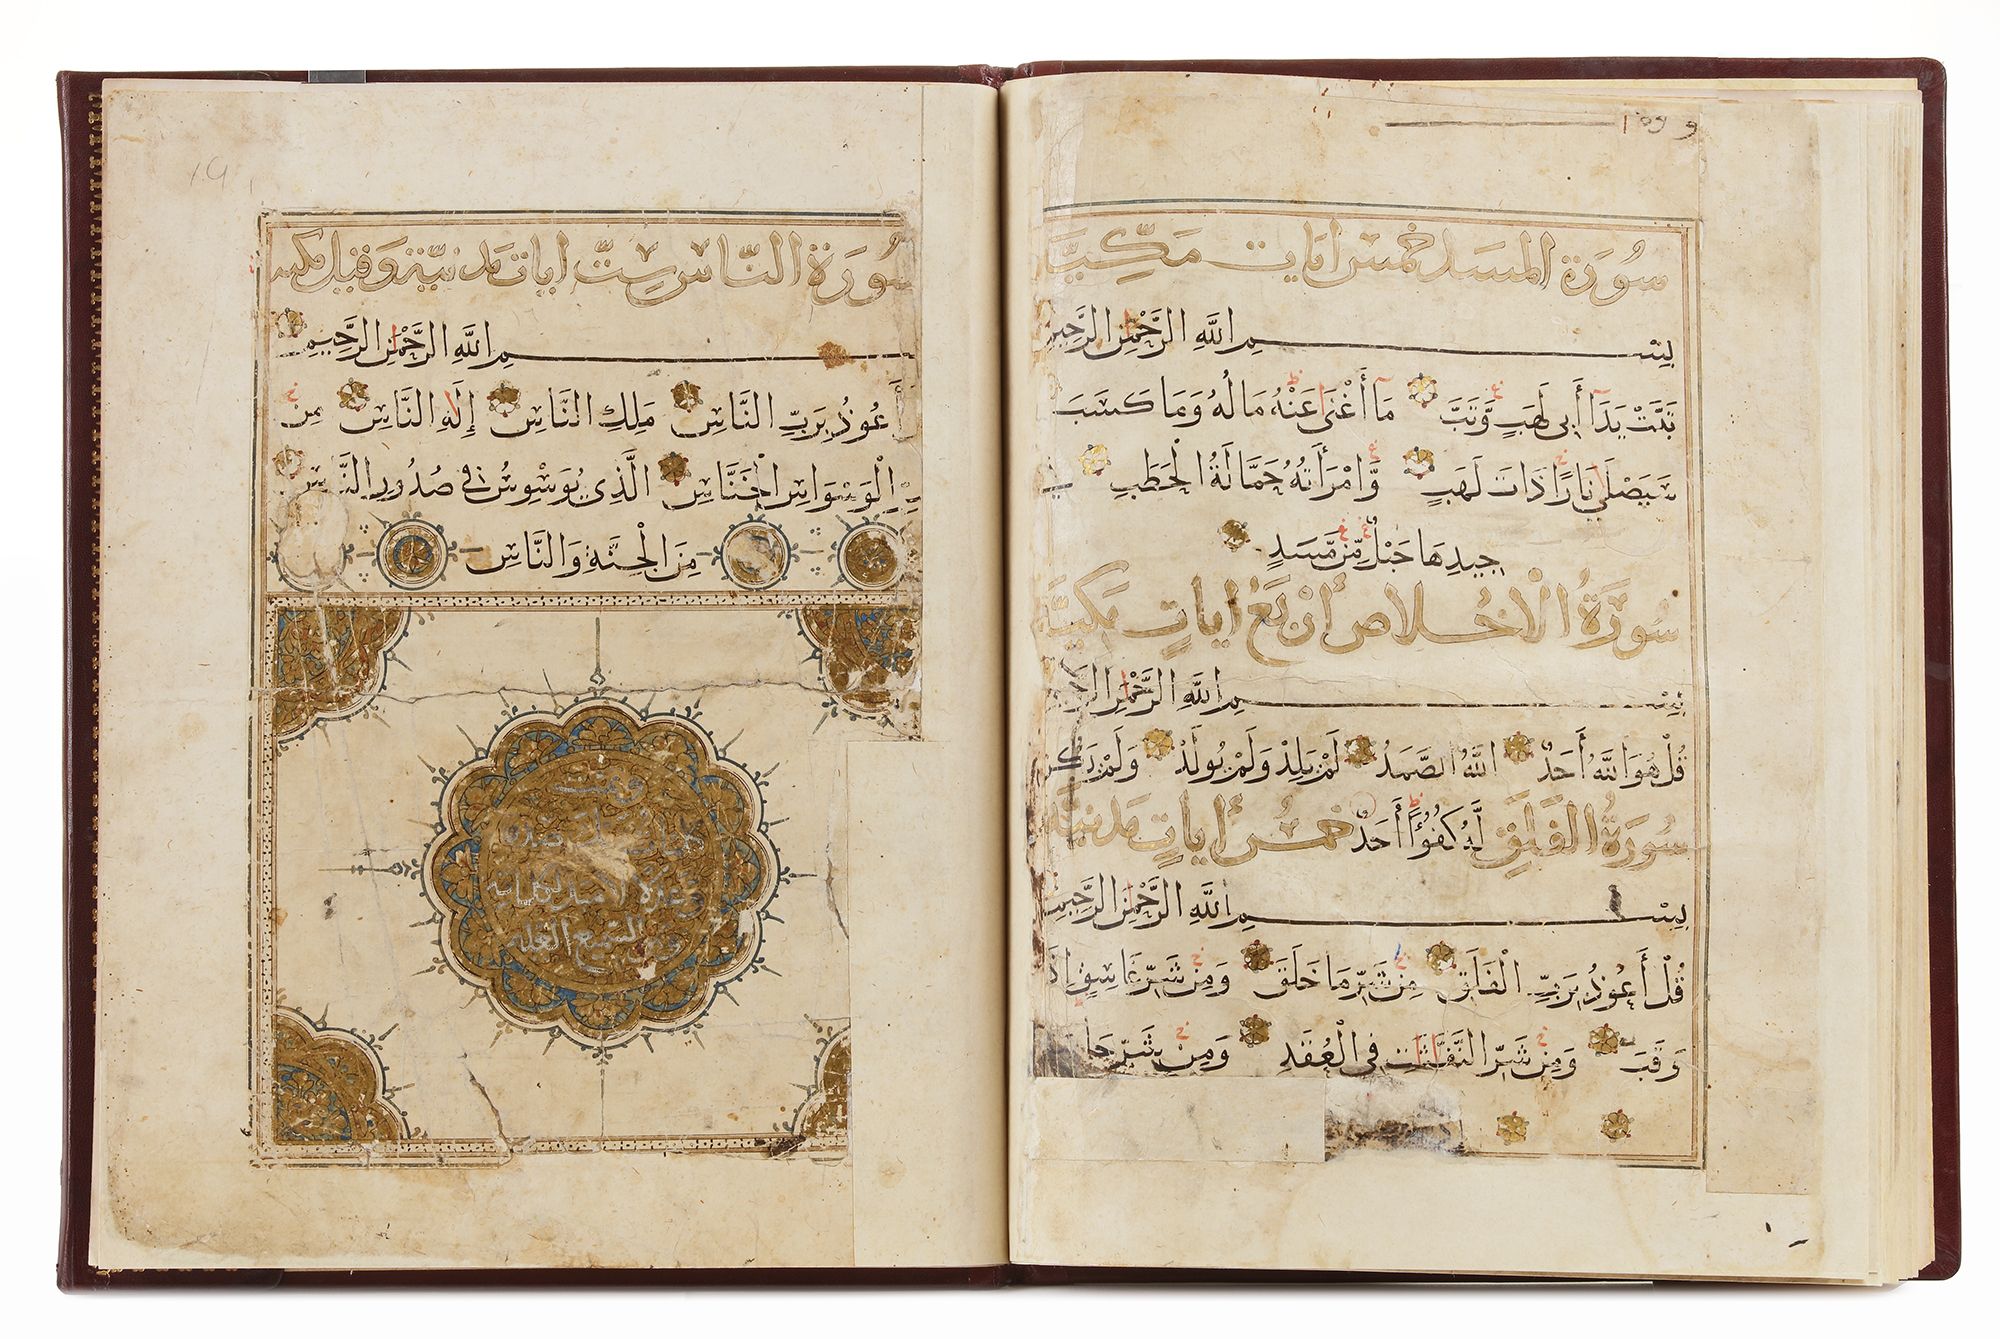 سُورَة المسَد خمس ايات مَكِّيَّة
بِسْمِ اللَّهِ الرَّحْمٰنِ الرَّحِيمِ
تَبَّتْ يَدَآ أَبِى لَهَبٍ وَّتَبَّ مَآ أَغْنٰى عَنْهُ مَالُهُ وَمَا كَسَبَ
سَيَصْلٰى نَارًا ذَاتَ لَهَبٍ وَّامْرَأَتُهُ حَمَّالَةُ الْحَطَبِ فِي
جِيدِهَا حَبْلٌ مِّن مَّسَدٍ
سُورَةُ الْاخْلاص أربَعُ اياتٍ مكيَّة
بِسْمِ اللَّهِ الرَّحْمٰنِ الرَّحِيمِ
قُلْ هُوَ اللَّهُ أَحَدٌ اللَّهُ الصَّمَدُ لَمْ يَلِدْ وَلَمْ يُولَدْ وَلَمْ يَكُن
لَّهُ كُفُوًا أَحَدٌ
سُورَةُ الفَلَقِ خمسُ أياتٍ مَدنيَّة
بِسْمِ اللَّهِ الرَّحْمٰنِ الرَّحِيمِ
قُلْ أَعُوذُ بِرَبِّ الْفَلَقِ مِن شَرِّ مَا خَلَقَ وَمِن شَرِّ غَاسِقٍ إِذَا
وَقَبَ وَمِن شَرِّ النَّفّٰثٰتِ فِي الْعُقَدِ وَمِن شَرِّ حَا
سُورَةُ النَّاسِ سِتّ ايات مدنيّة وَقيل مكيه
مِ اللَّهِ الرَّحْمٰنِ الرَّحِيمِ
أَعُوذُ بِرَبِّ النَّاسِ مَلِكِ النَّاسِ إِلٰهِ النَّاسِ مِن
شَرِّ الْوَسْوَاسِ الْخَنَّاسِ الَّذِي يُوَسْوِسُ فِي صُدُورِ النَّاسِ
مِنَ الْجِنَّةِ وَالنَّاسِ
وتمت
كلمات ربك صدقا
وعدلا لا مبدل لكلماته
وهو السميع العليم